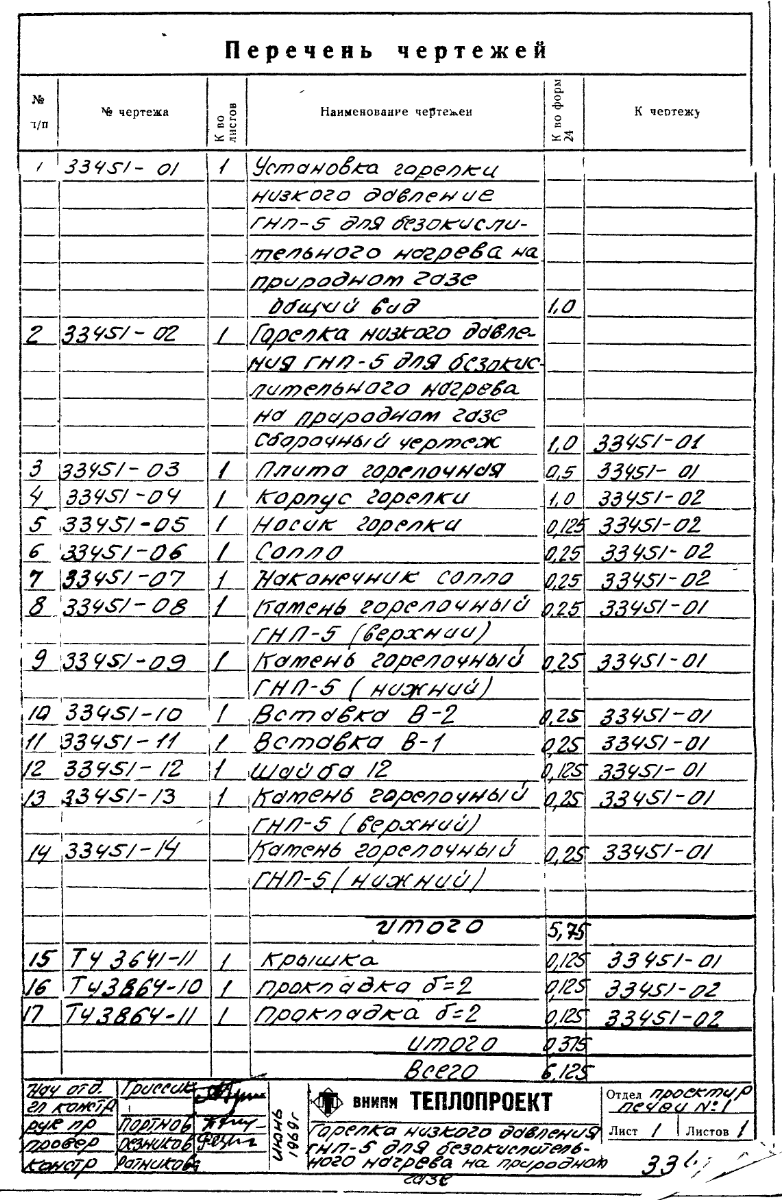 Перечень чертежей
№ п/п № чертежа К во листов Наименование чертежей К во форм 24 К чертежу
1 33451-01 1 Установка горелки
низкого давление
ГНП-5 для безокисли-
тельного нагрева на
природном газе
Общий вид 1,0
2 33451-02 1 Горелка низкого давле-
ния ГНП-5 для безокис-
лительного нагрева
на природном газе
Сборочный чертеж 1,0 33451-01
3 33451-03 1 Плита горелочная 0,5 33451-01
4 33451-04 1 Корпус горелки 1,0 33451-02
5 33451-05 1 Носик горелки 0,125 33451-02
6 33451-06 1 Сопло 0,25 33451-02
7 33451-07 1 Наконечник сопла 0,25 33451-02
8 33451-08 1 Камень горелочный 0,25 33451-01
ГНП-5 (верхний)
9 33451-09 1 Камень горелочный 0,25 33451-01
ГНП-5 (нижний)
10 33451-10 1 Вставка В-2 0,25 33451-01
11 33451-11 1 Вставка В-1 0,25 33451-01
12 33451-12 1 Шайба 12 0,125 33451-01
13 33451-13 1 Камень горелочный 0,25 33451-01
ГНП-5 (верхний)
14 33451-14 Камень горелочный 0,25 33451-01
ГНП-5 (нижний)
итого 5,75
15 ТЧ 3641-11 1 Крышка 0,125 33451-01
16 ТЧ3864-10 1 Прокладка δ=2 0,125 33451-02
17 ТЧ3864-11 1 Прокладка δ=2 0,125 33451-02
итого 0,375
Всего 6,125
Нач отд. Гриссик
гл констр
рук пр Портнов
провер Резников
констр Ратникова
июнь 1969г
ВНИПИ ТЕПЛОПРОЕКТ
Горелка низкого давления
ГНП-5 для безокислитель-
ного нагрева на природном
газе
Отдел проектир
печей №1
Лист 1 Листов 1